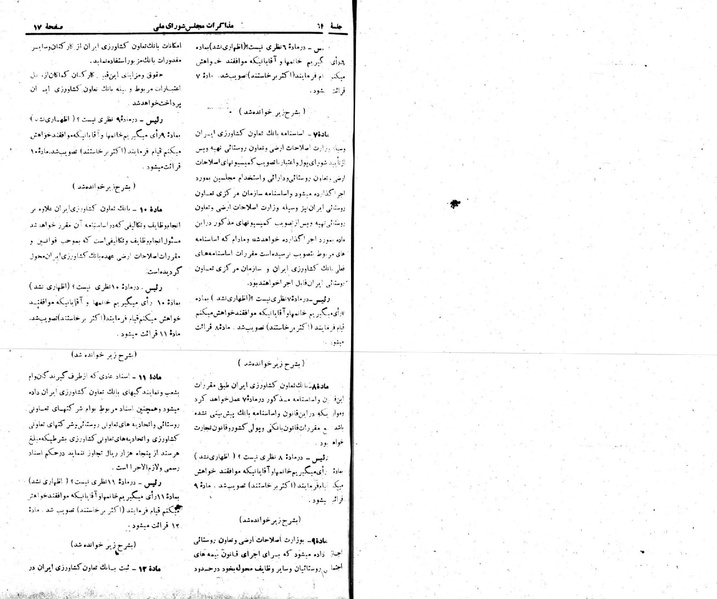 جلسه ۱۶
مذاکرات مجلس شورای ملی
صفحهٔ ۱۷
در مادهٔ ۶ نظری نیست؟ (اظهاری نشد) بماده
۶ رأی میگیریم خانمها و آقایانیکه موافقند خواهش
میکنم فرمایند (اکثر برخاستند) تصویب شد. مادهٔ ۷
قرائت میشود.
(بشرح زیر خوانده شد)
مادهٔ ۷ اساسنامه بانک تعاون کشاورزی ایران
وسیله وزارت اصلاحات ارضی و تعاون روستائی تهیه و پس
از تأیید شورای پول و اعتبار با تصویب کمیسیونهای اصلاحات
ارضی و تعاون روستائی و دارائی و استخدام مجلسین بمورد
اجرا گذارده میشود و اساسنامه سازمان مرکزی تعاون
روستائی ایران نیز وسیله وزارت اصلاحات ارضی و تعاون
روستائی تهیه و پس از تصویب کمیسیونهای مذکور در این
ماده بمورد اجرا گذارده خواهد شد و مادام که اساسنامه
های مربوط بتصویب نرسیده است مقررات اساسنامه‌های
فعلی بانک کشاورزی ایران و سازمان مرکزی تعاون
روستائی ایران قابل اجرا خواهند بود.
رئیس ـ در مادهٔ ۷ نظری نیست؟ (اظهاری نشد) بماده
۷ رأی میگیریم خانمها و آقایانیکه موافقند خواهش میکنم
قیام فرمایند (اکثر برخاستند) تصویب شد. مادهٔ ۸ قرائت
میشود.
(بشرح زیر خوانده شد)
مادهٔ ۸ بانک تعاون کشاورزی ایران طبق مقررات
این قانون و اساسنامه مذکور در مادهٔ ۷ عمل خواهد کرد
و مواردیکه در این قانون و اساسنامه بانک پیش‌بینی نشده
باشد مقررات قانون بانکی و پولی کشور و قانون تجارت
خواهد بود.
رئیس ـ در مادهٔ ۸ نظری نیست؟ (اظهاری نشد)
بمادهٔ رأی میگیریم خانمها و آقایانیکه موافقند خواهش
میکنم فرمایند (اکثر برخاستند) تصویب شد. مادهٔ ۹
قرائت میشود.
(بشرح زیر خوانده شد)
مادهٔ ۹ـ بوزارت اصلاحات ارضی و تعاون روستائی
اجازه داده میشود که برای اجرای قانون بیمه های
اجتماعی روستائیان و سایر وظایف محوله بخود در حدود
امکانات بانک تعاون کشاورزی ایران از کارکنان و سایر
مقدورات بانک مزبور استفاده نماید.
حقوق و مزایای این قبیل کارکنان کماکان از محل
اعتبارات مربوط و بوسیله بانک تعاون کشاورزی ایران
پرداخت خواهد شد.
رئیس ـ در مادهٔ ۹ نظری نیست؟ (اظهاری نشد)
بمادهٔ ۹ رأی میگیریم خانمها و آقایانیکه موافقند خواهش
میکنم قیام فرمایند (اکثر برخاستند) تصویب شد. مادهٔ ۱۰
قرائت میشود.
(بشرح زیر خوانده شد)
مادهٔ ۱۰ ـ بانک تعاون کشاورزی ایران علاوه بر
انجام وظایف و تکالیفی که در اساسنامه آن مقرر خواهد شد
مسئول انجام وظایف و تکالیفی است که بموجب قوانین و
مقررات اصلاحات ارضی بعهده بانک کشاورزی ایران محول
گردیده است.
رئیس ـ در مادهٔ ۱۰ نظری نیست؟ (اظهاری نشد)
بمادهٔ ۱۰ رأی میگیریم خانمها و آقایانیکه موافقند
خواهش میکنم قیام فرمایند (اکثر برخاستند) تصویب شد.
مادهٔ ۱۱ قرائت میشود.
(بشرح زیر خوانده شد)
مادهٔ ۱۱ ـ اسناد عادی که از طرف گیرندگان وام
بشعب و نمایندگیهای بانک تعاون کشاورزی ایران داده
میشود و همچنین اسناد مربوط بوام شرکتهای تعاونی
روستائی و اتحادیه های تعاونی روستائی و شرکتهای تعاونی
کشاورزی و اتحادیه‌های تعاونی کشاورزی بشرطیکه مبلغ
هر سند از پنجاه هزار ریال تجاوز ننماید در حکم اسناد
رسمی و لازم‌الاجرا است.
رئیس ـ در مادهٔ ۱۱ نظری نیست؟ (اظهاری نشد)
بمادهٔ ۱۱ رأی میگیریم خانمها و آقایانیکه موافقند خواهش
میکنم قیام فرمایند (اکثر برخاستند) تصویب شد. مادهٔ
۱۲ قرائت میشود.
(بشرح زیر خوانده شد)
مادهٔ ۱۲ ـ ثبت بانک تعاون کشاورزی ایران در